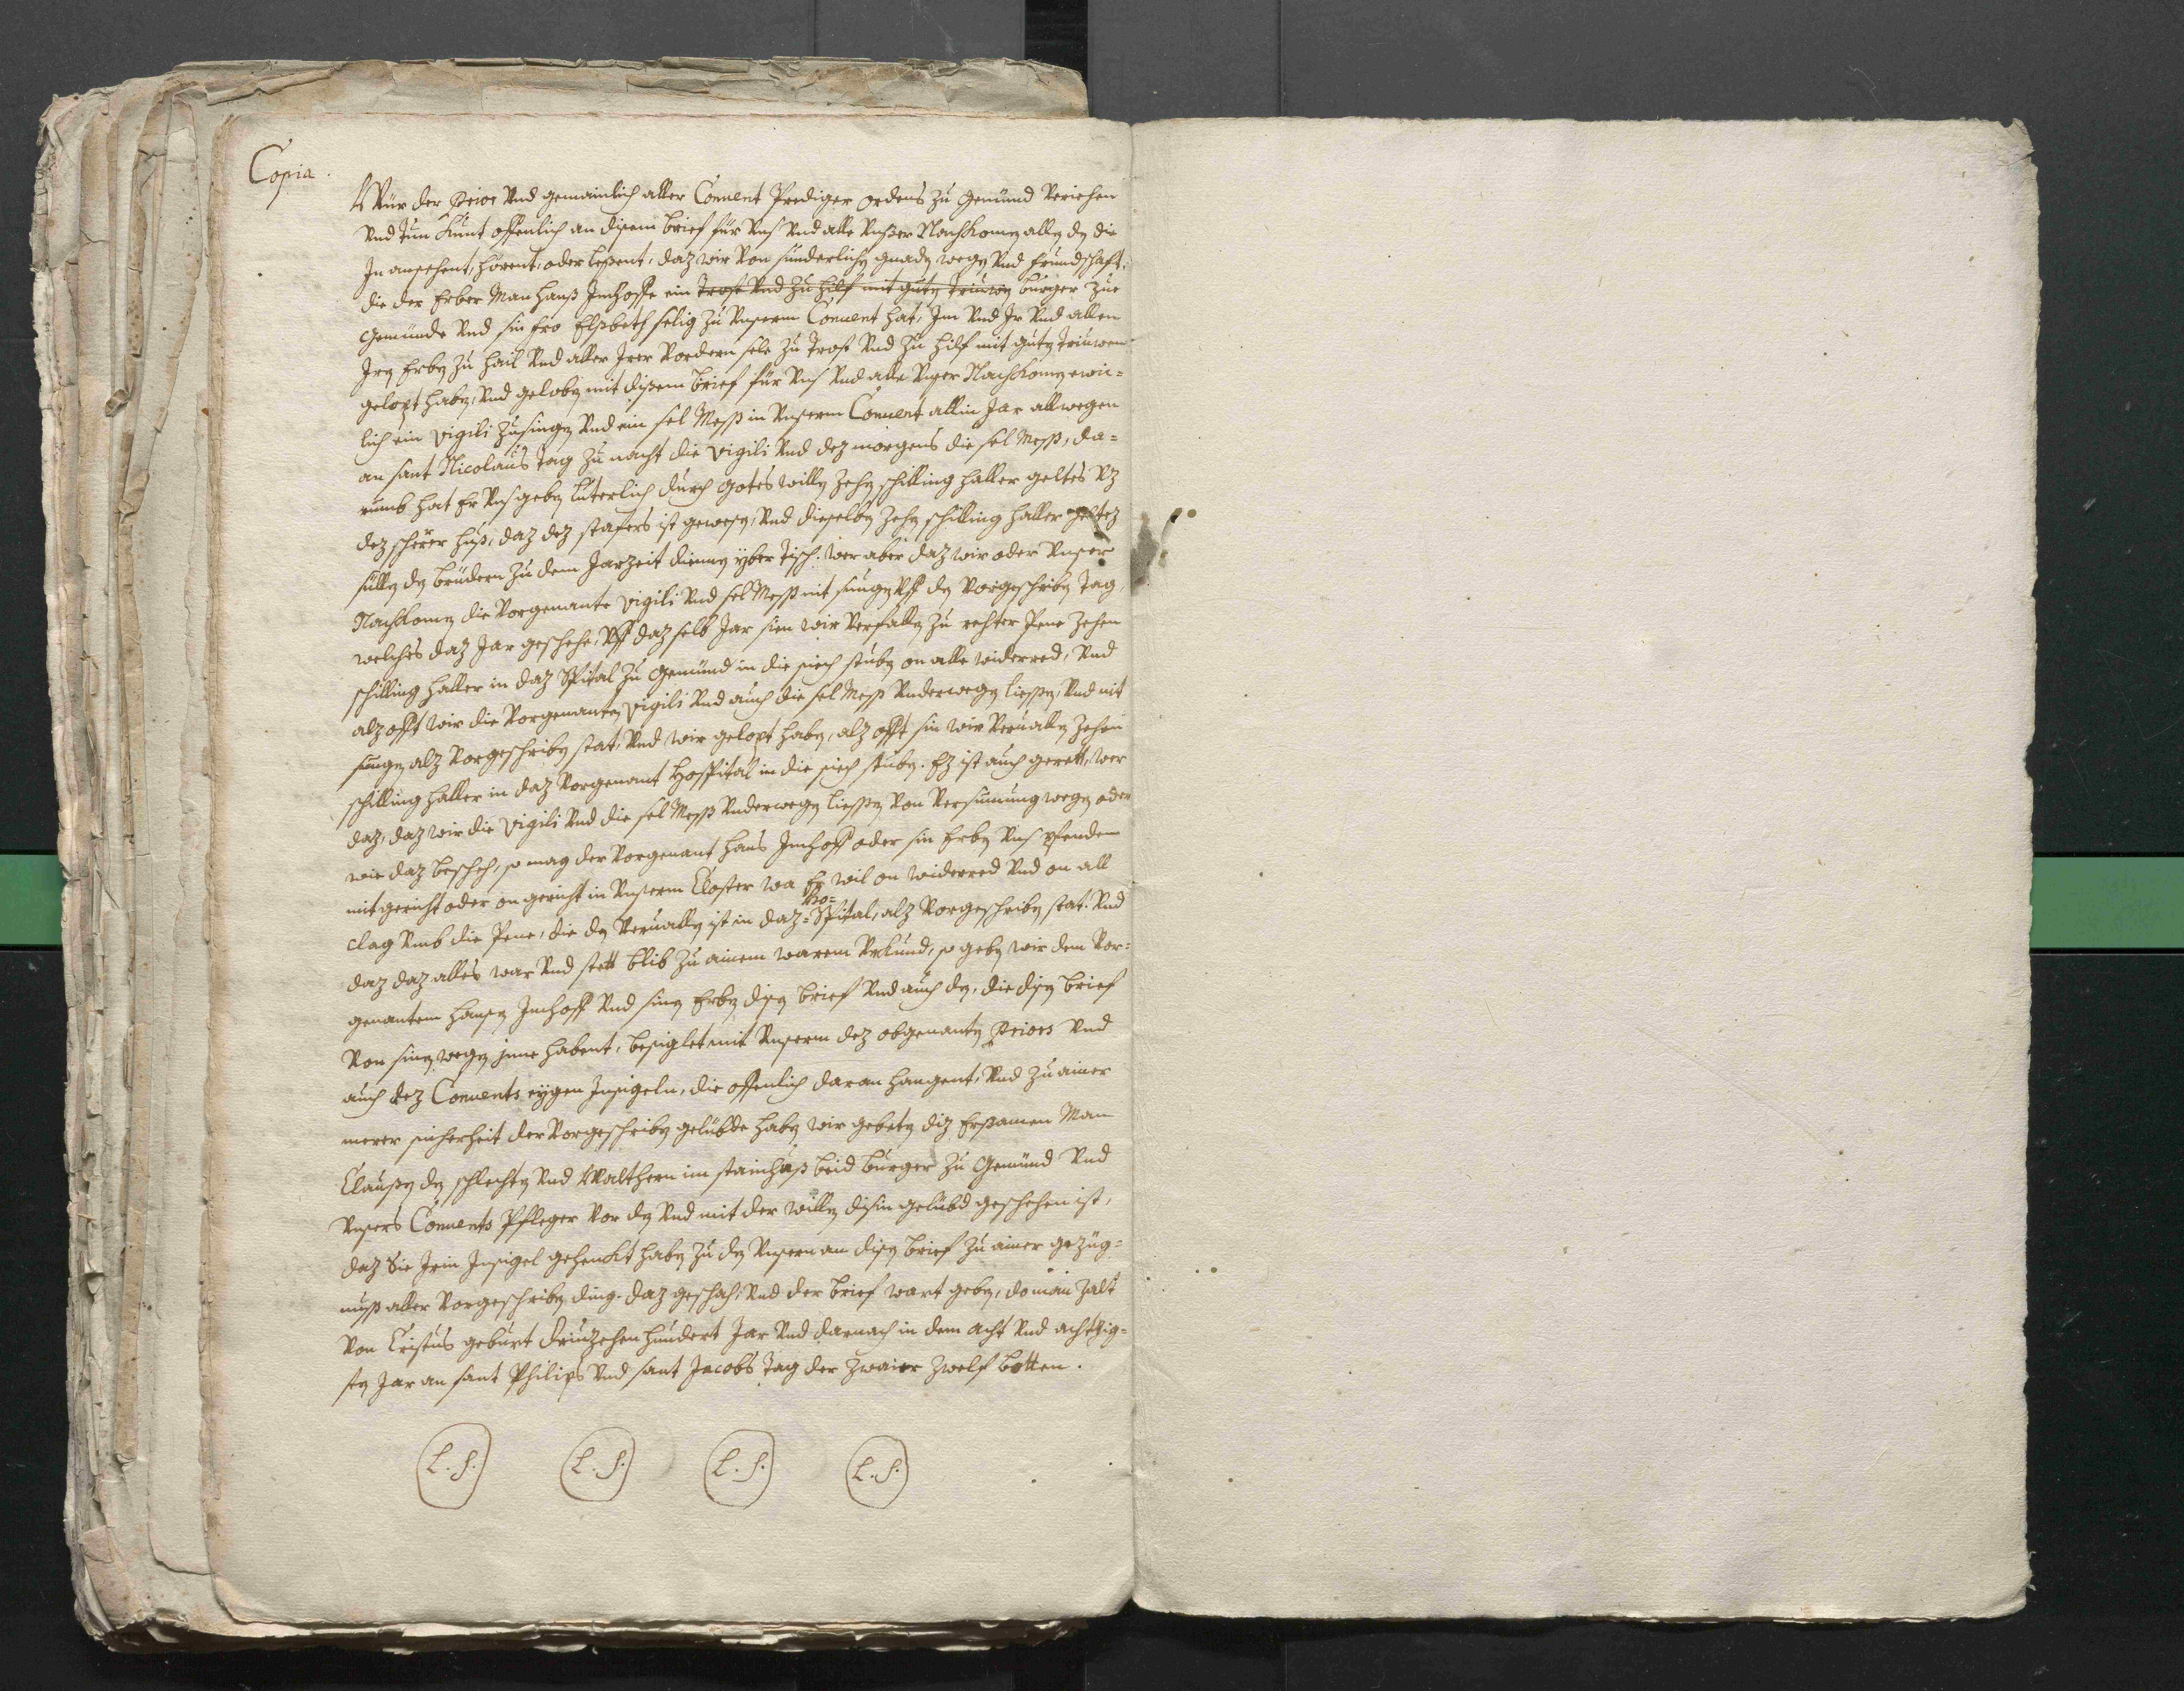 Copia.
Wür der Prior Vnd gemainlich aller Conuent Prediger ordens zu Gemünd Veriehen
Vnd tun kunt offenlich an disem brief für Vns Vnd alle Vnßer Nachkomen allen den die
In ansehent, hörent, oder leßent, daz wir Von sünderlichen gnaden wegen Vnd frundschaft,
die der Erber Man Hanß Imhoffe ein trost Vnd zu hilf mit guten triuwen burger zue
Gemünde Vnd sin fro Elßbeth selig zu Vnserm Conuent hat, Im Vnd Ir Vnd allen
Iren Erben zu hail Vnd aller Irer Vordern sele zu trost Vnd zu hilf mit guten triuwen
gelopt haben, Vnd geloben mit dißem brief für Vns Vnd alle Vnser Nachkomen ewic=
lich ein Vigili zusingen Vnd ein sel Meß in Vnserm Conuent allin Jar allwegen
an sant Nicolaus tag zu nacht die Vigili Vnd dez morgens die sel Meß, da=
rumb hat Er Vns geben luterlich durch Gotes willen zehen schilling haller geltes Vz
dez scherer huß, daz dez stafers ist gewesen, Vnd dieselben zehen schilling haller geltez
süllen den brüdern zu dem Jarzeit dienen yber tisch. Wer aber daz wir oder Vnser
Nachkomen die Vorgenante Vigili Vnd sel Meß nit sungen Vff den Vorgeschriben tag,
welches daz Jar geschehe, Vff daz selb Jar sien wir Verfallen zu rehter Pene zehen
schilling haller in daz Spital zu Gemünd in die siech stuben on alle widerred, Vnd
alz offt wir die Vorgenanten Vigili Vnd auch die sel Meß Vnderwegen liessen, Vnd nit
sungen, alz Vorgeschriben stat, Vnd wir gelopt haben, alz offt sin wir Veruallen zehen
schilling haller in daz Vorgenant Hospital in die siech stuben. Ez ist auch gerett, wer
daz, daz wir die Vigili Vnd die sel Meß Vnderwegen liessen Von Versumung wegen oder
wie daz beschehe, so mag der Vorgenant Hans Imhoff oder sin Erben Vns pfenden
mit gericht oder on gericht in Vnserm Closter wa Er wil on widerred Vnd on all
clag Vmb die Pene, die den Veruallen ist in daz Ho=Spital, alz Vorgeschriben stat. Vnd
daz daz alles war Vnd stett blib zu ainem warem Vrkund, so geben wir dem Vor=
genantem Hansen Imhoff Vnd sinen Erben disen brief Vnd auch den, die disen brief
Von sinen wegen inne habent, besiglet mit Vnserm dez obgenanten Priors Vnd
auch dez Conuents eygen Insigeln, die offenlich daran hangent, Vnd zu ainer
merer sicherheit der Vorgeschriben gelübde haben wir gebeten diz Ersamen Man
Claußen den schlechten Vnd Walthern im stainhuß beid burger zu Gemünd Vnd
Vnsers Conuents Pfleger Vor den Vnd mit der willen disin gelübd geschehen ist,
daz Sie Irin Insigel gehenckt haben zu den Vnsern an disen brief zu ainer gezüg=
nuß aller Vorgeschriben ding. daz geschah, Vnd der brief wart geben, do man zalt
Von Cristus geburt driuzehen hundert Jar Vnd darnach in dem acht Vnd achtzig=
sten Jar an sant Philips Vnd sant Jacobs tag der zwaier zwelf botten.
L. S. L. S. L. S. L. S.